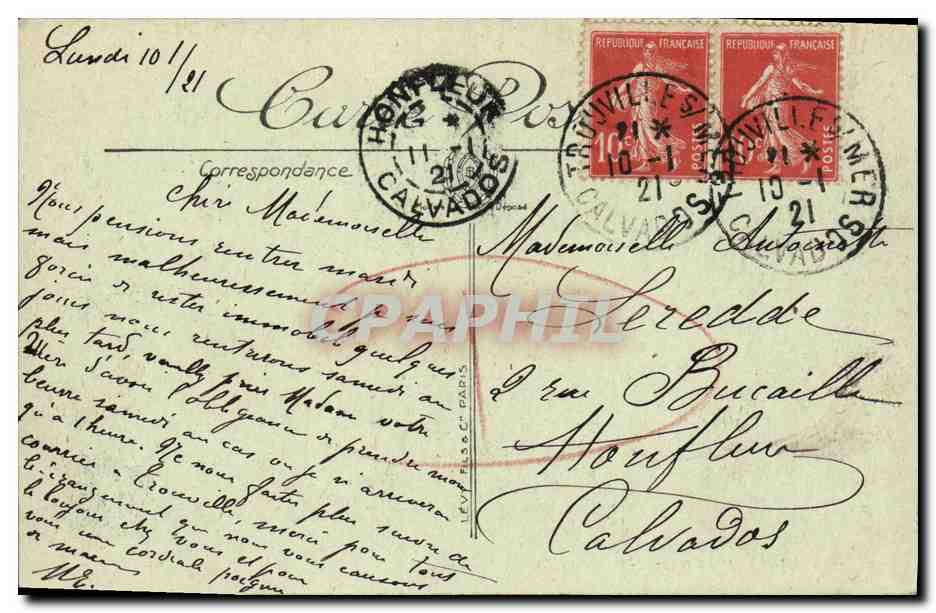 Lundi 10 1/21
Carte Pos
REPUBLIQUE FRANÇAISE
REPUBLIQUE FRANÇAISE
10c POSTES
POSTES
HONFLEUR
11 - 1
21
CALVADOS
TROUVILLE S/ MER
21 *
10 - 1
21
CALVADOS
TROUVILLE S/ MER
21 *
10 - 1
21
CALVADOS
Correspondance
Déposé
Chère Mademoiselle
Nous pensions rentrer mardi
mais malheureusement je suis
forcée de rester immobile quelques
jours nous rentrerons samedi au
plus tard veuillez prier Madame votre
mère d'avoir l'obligeance de prendre mon
beurre samedi au cas où je n'arriverai
qu'à 1 heure. Ne nous faites plus suivre de
courrier à Trouville, merci pour tous
le dérangement que nous vous causons
le bonjour chez vous et pour
vous une cordiale poignée
de mains
Mademoiselle Antoinette
Leredde
2 rue Bucaille
Honfleur
Calvados
LÉVY FILS & Cie PARIS
CPAPHIL